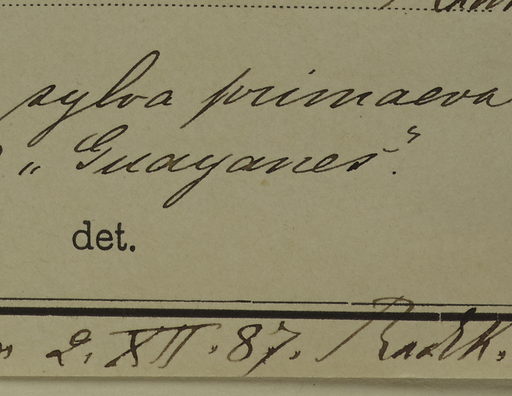 sylva primaeva
„ Guayanes".
det.
2. XII. 87. Radlk.